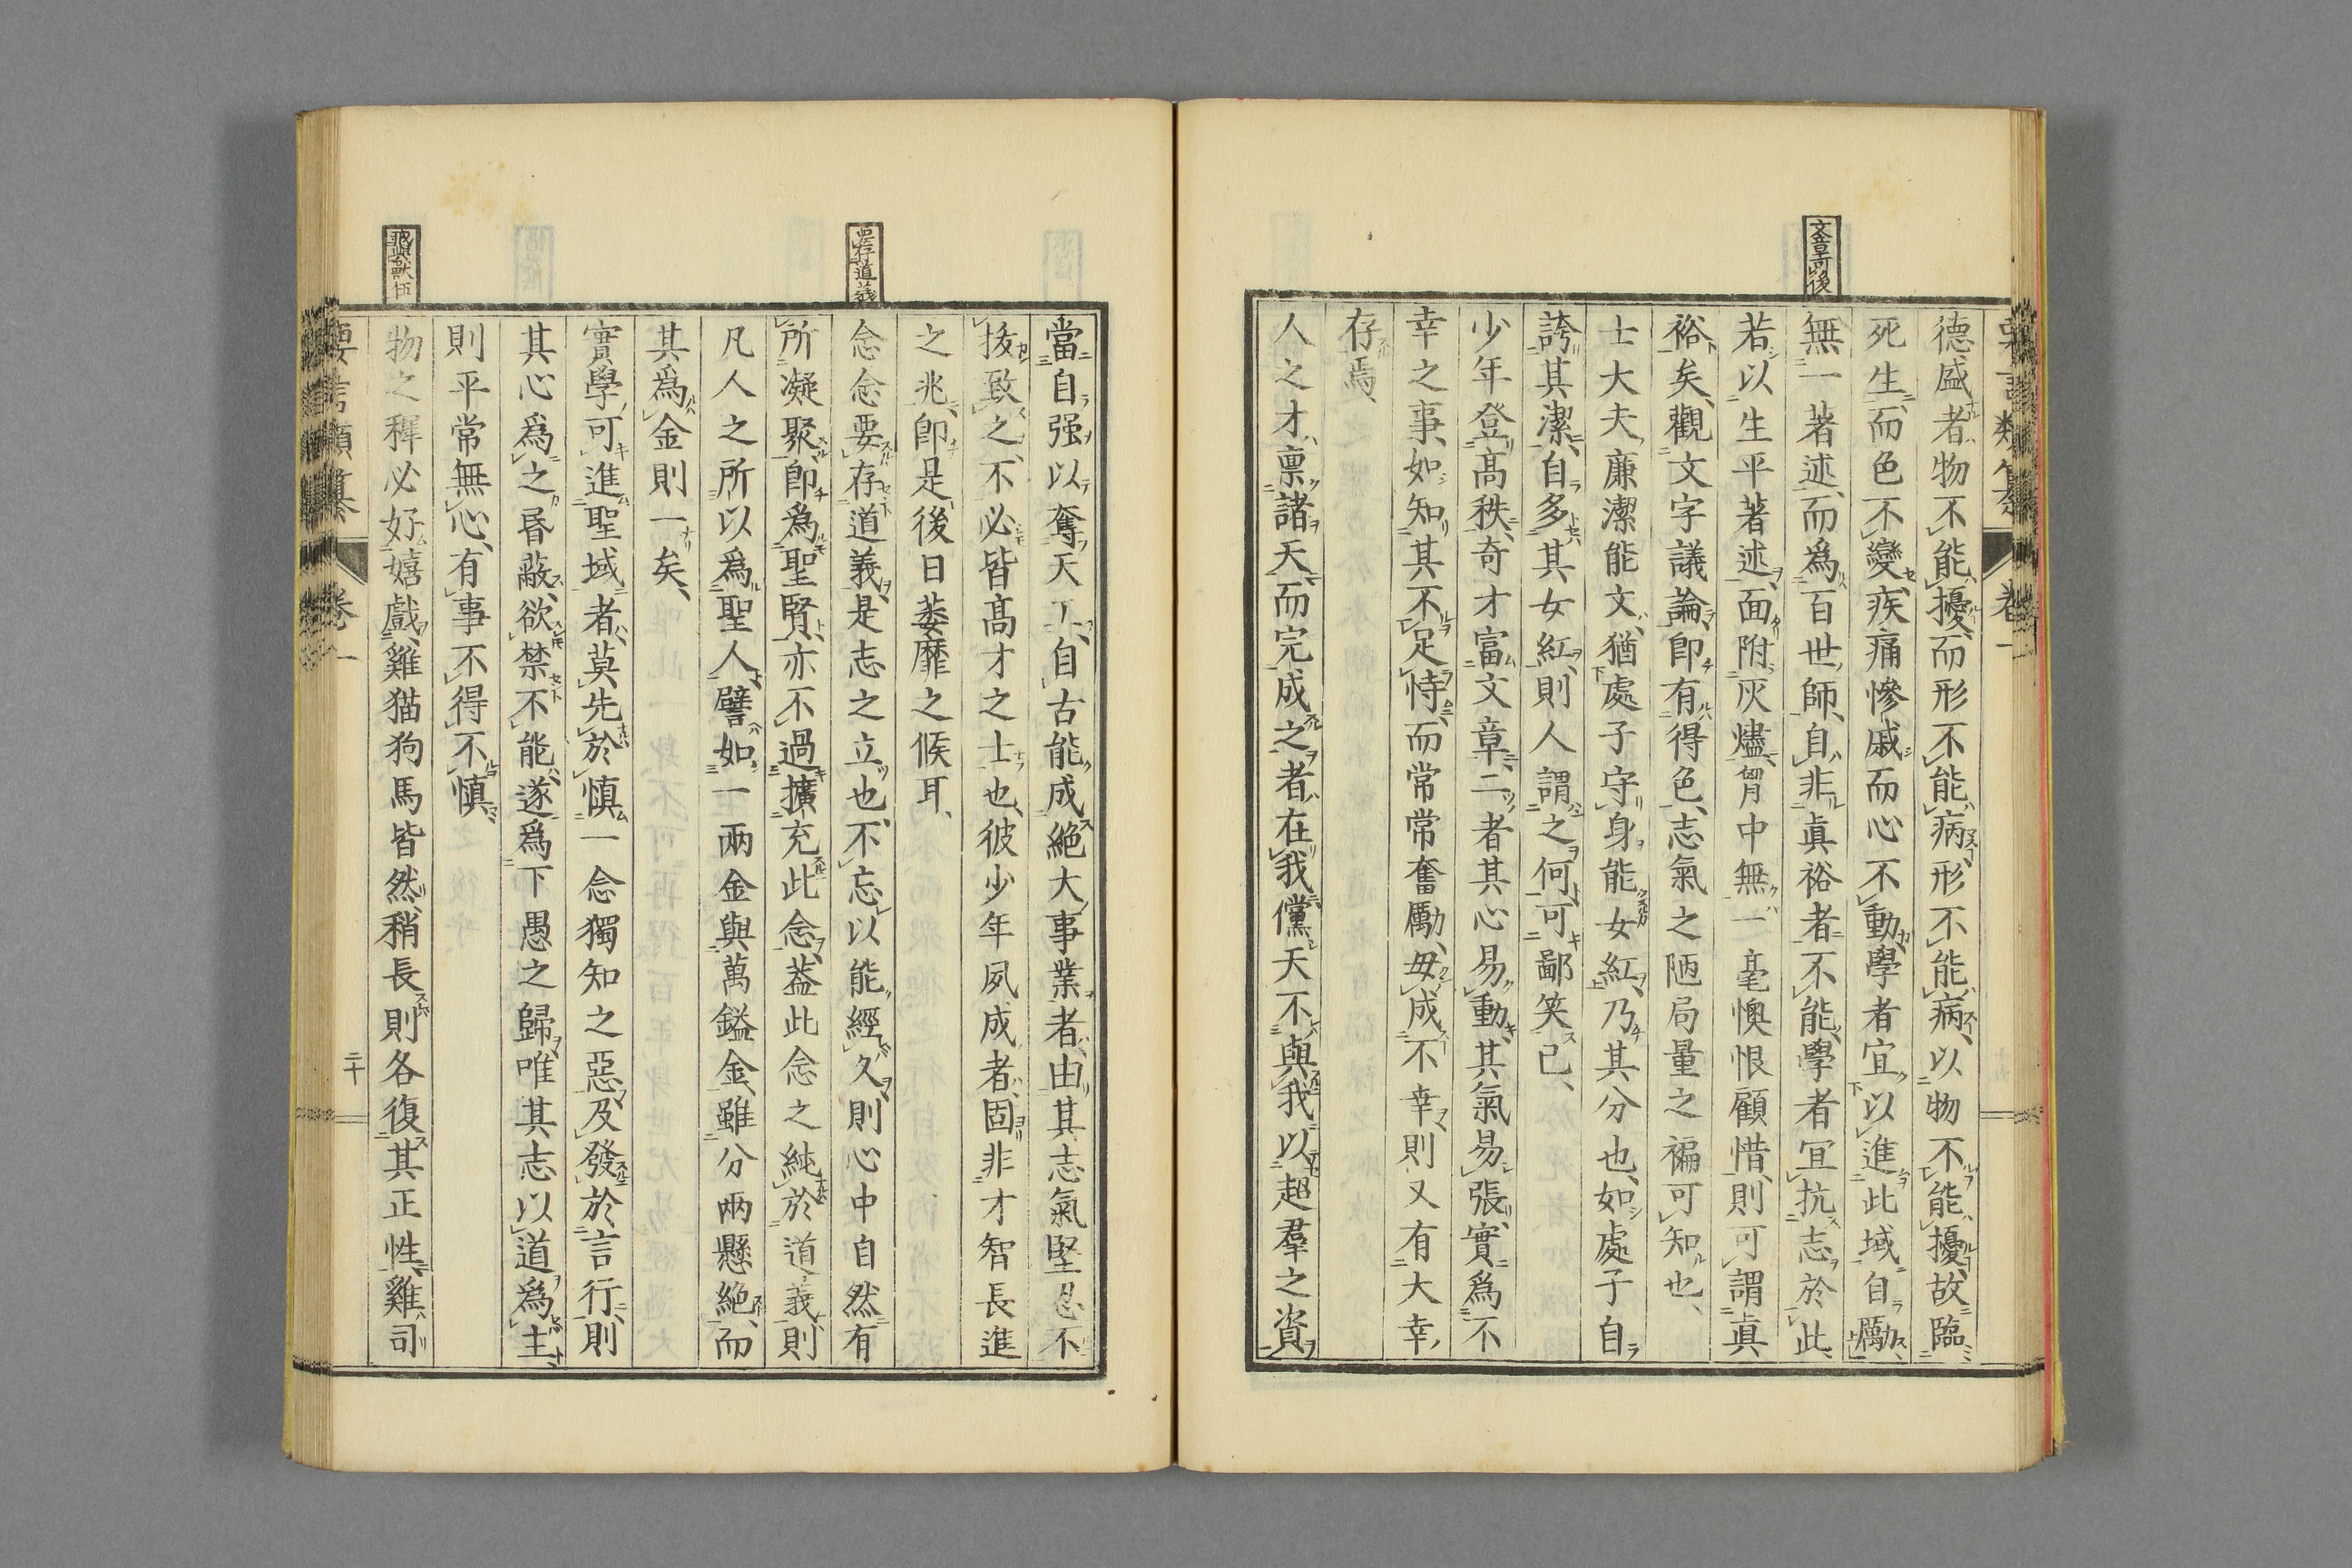 德盛者、物不能擾、而形不能病、形不能病、以物不能擾、故臨
死生、而色不變、疾痛慘戚而心不動、學者宜以進此域自勵、
無一著述、而爲百世師、自非眞裕者不能、學者宜抗志於此、
若以生平著述、面附灰燼、胷中無一毫懊恨顧惜、則可謂眞
裕矣、觀文字議論、卽有得色、志氣之陋局量之褊可知也、
士大夫、廉潔能文、猶處子守身能女紅、乃其分也、如處子自
誇其潔、自多其女紅、則人謂之何、可鄙笑已、
少年登髙秩、奇才富文章、二者其心易動、其氣易張、實爲不
幸之事、如知其不足恃、而常常奮勵、毋成不幸、則又有大幸
存焉、
人之才、禀諸天、而完成之者、在我、儻天不與我以超羣之資、
文章竒後
要言類纂 卷一
當自强以奪天工、自古能成絶大事業者、由其志氣堅忍不
拔致之、不必皆髙才之士也、彼少年夙成者、固非才智長進
之兆、卽是後日萎靡之候耳、
念念要存道義、是志之立也、不忘以能經久、則心中自然有
所凝聚、卽爲聖賢、亦不過擴充此念、葢此念之純於道義、則
凡人之所以爲聖人、譬如一兩金與萬鎰金、雖分兩懸絶、而
其爲金則一矣、
實學可進聖域者、莫先於愼一念獨知之惡、及發於言行、則
其心爲之昏蔽、欲禁不能、遂爲下愚之歸、唯其志以道爲主、
則平常無心、有事不得不愼、
物之穉必好嬉戲、雞猫狗馬皆然、稍長則各復其正性、雞司
存道義
要言類纂 卷一 二十